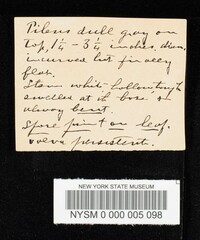 Pileus dull gray on
top, 1¼ - 3¼ inches, diam,
incurved but finally
flat.
Stem white hollow tough
swelled at its base &
always bent
Spore print on leaf.
volva persistent.
NEW YORK STATE MUSEUM
NYSM 0 000 005 098